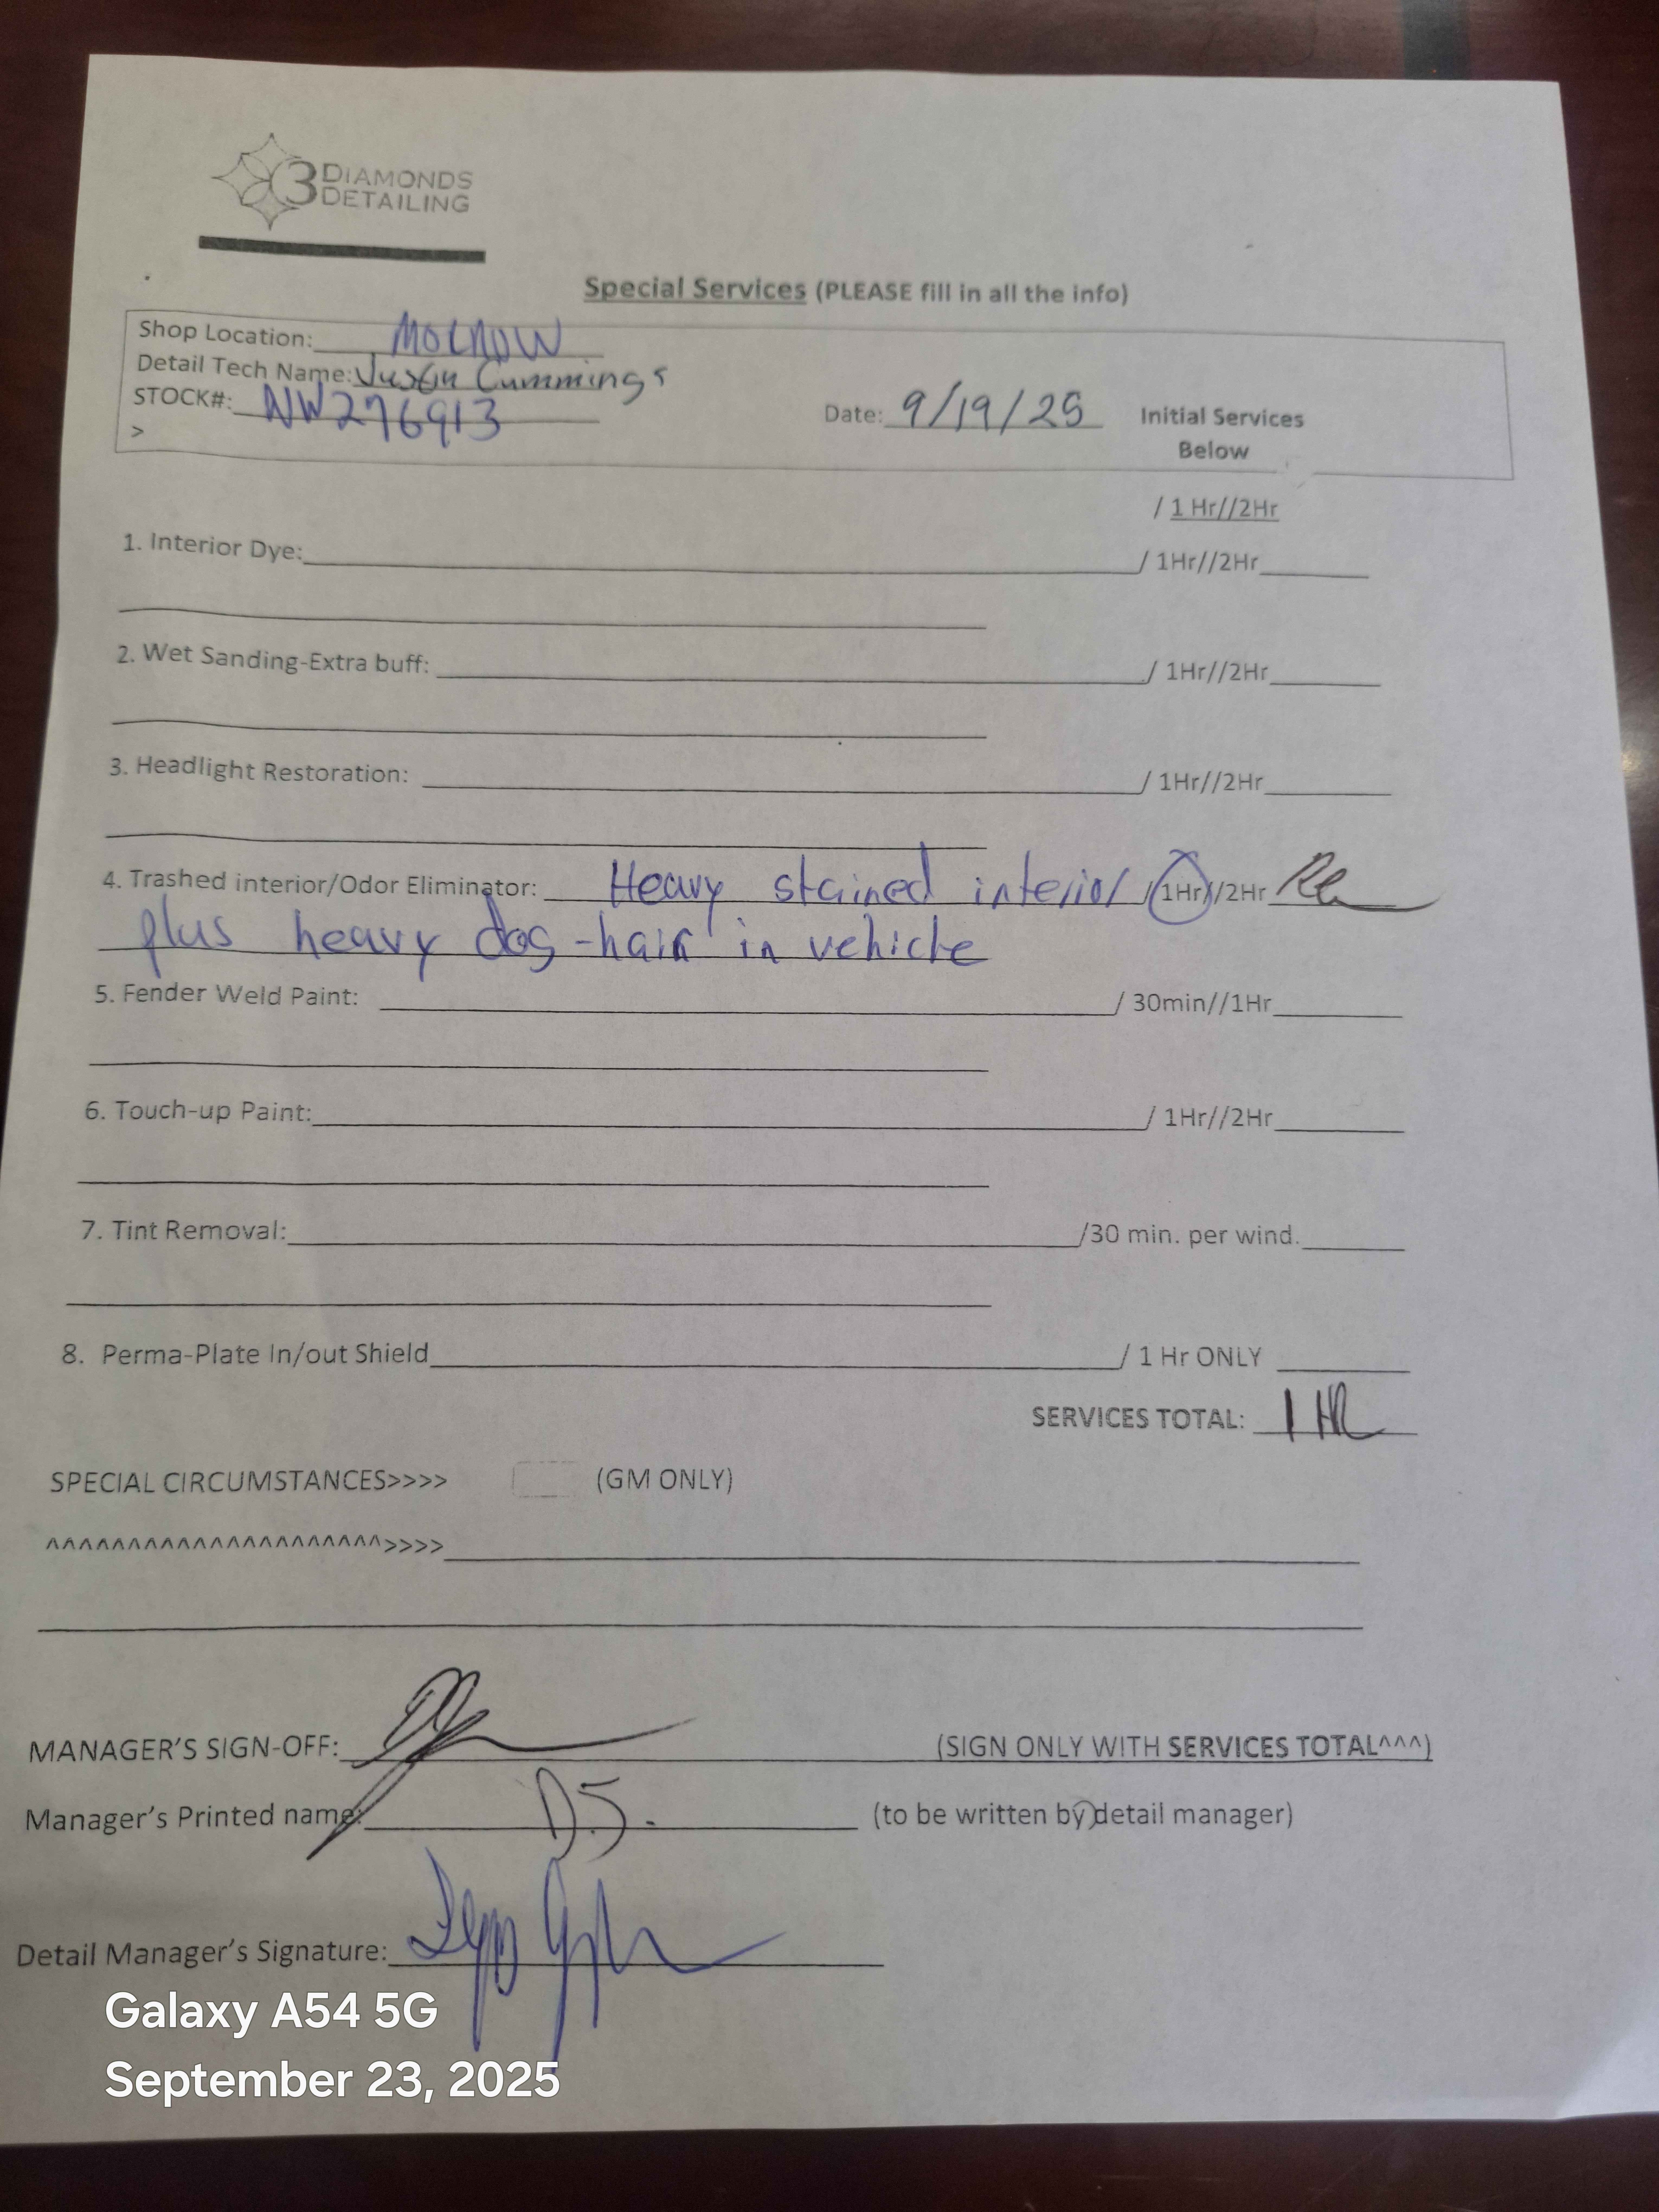 3 DIAMONDS
DETAILING
Special Services (PLEASE fill in all the info)
Shop Location: MOCNDW
Detail Tech Name: Justin Cummings
STOCK#: NW276913
Date: 9/19/25 Initial Services
Below
>
/ 1 Hr//2Hr
1. Interior Dye: / 1Hr//2Hr
2. Wet Sanding-Extra buff: / 1Hr//2Hr
3. Headlight Restoration: / 1Hr//2Hr
4. Trashed interior/Odor Eliminator: Heavy stained interior / 1Hr//2Hr
plus heavy dog-hair in vehicle
5. Fender Weld Paint: / 30min//1Hr
6. Touch-up Paint: / 1Hr//2Hr
7. Tint Removal: /30 min. per wind.
8. Perma-Plate In/out Shield / 1 Hr ONLY
SERVICES TOTAL: 1 HR
SPECIAL CIRCUMSTANCES>>>> (GM ONLY)
^^^^^^^^^^^^^^^^^^^^^>>>>
MANAGER'S SIGN-OFF: (SIGN ONLY WITH SERVICES TOTAL^^^)
Manager's Printed name: D.J. (to be written by detail manager)
Detail Manager's Signature:
Galaxy A54 5G
September 23, 2025